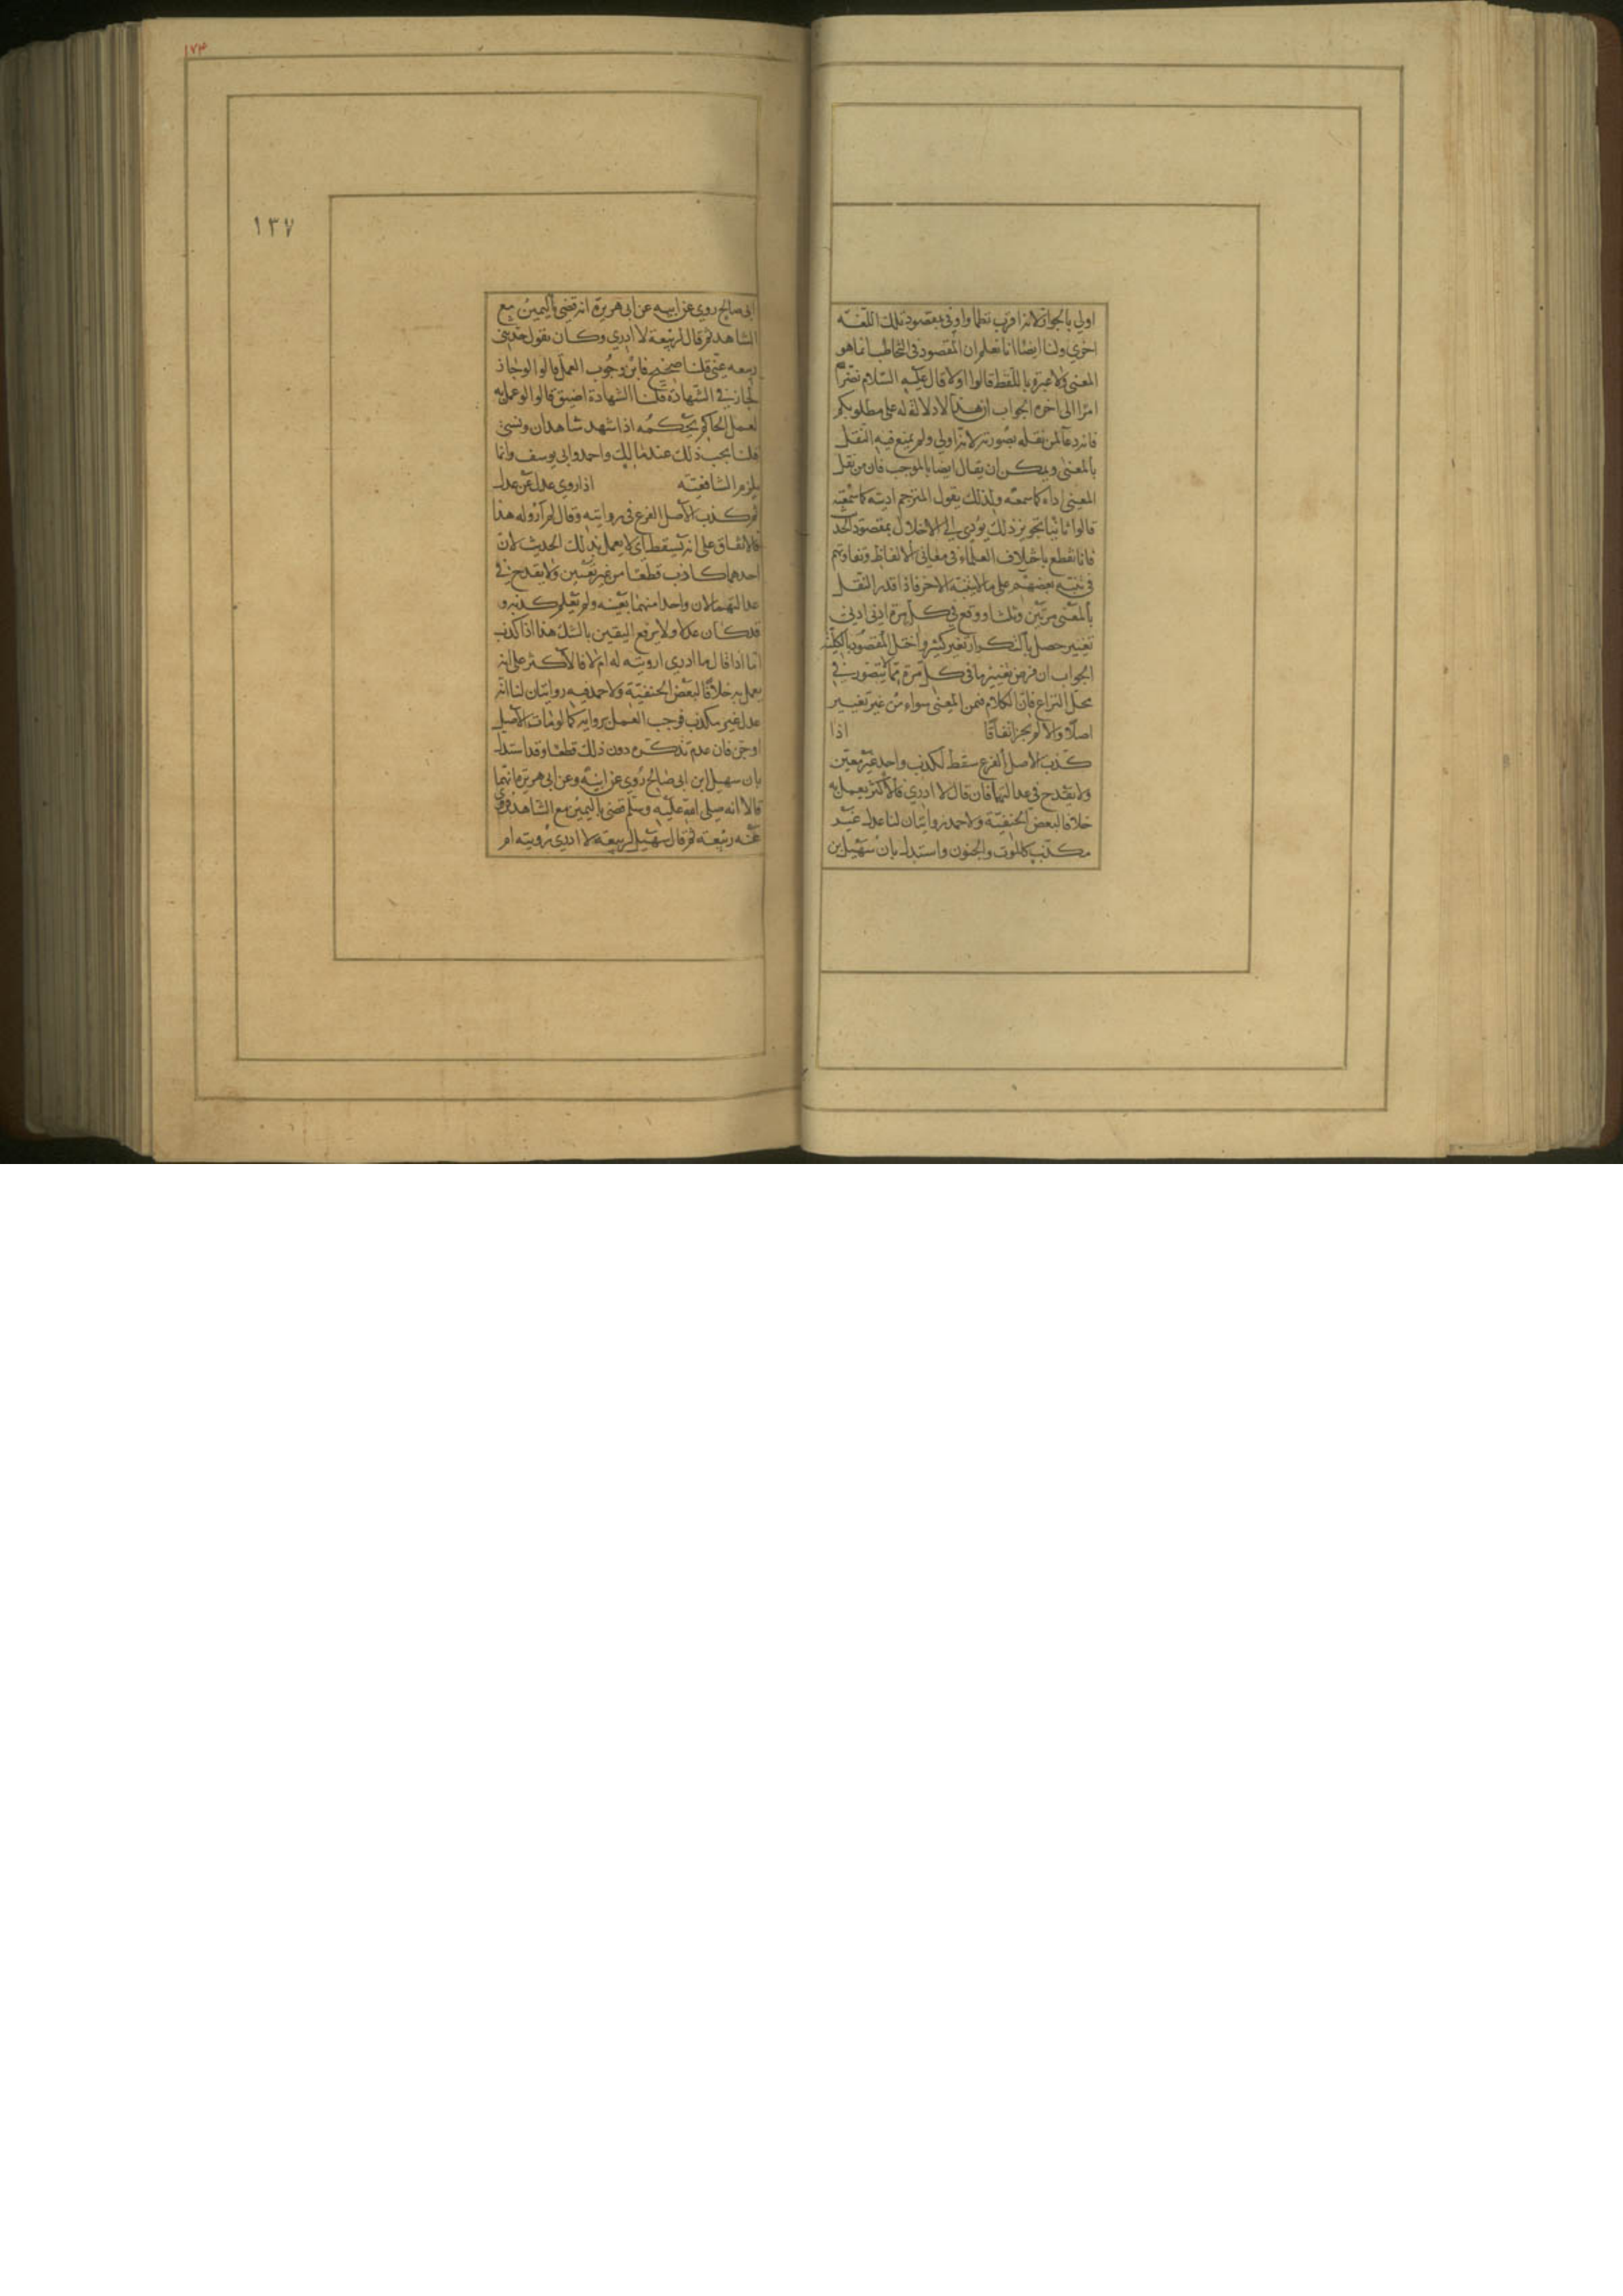 اولي بالجواز لانه اقرب نظما واوفى بمقصود تلك اللغة
اخري ولنا ايضا انا نعلم ان المقصود في التخاطب انما هو
المعنى ولا عبرة باللفظ قالوا اولا قال عليه السلام نضر الله
امرا الى اخره الجواب ان هذا لا دلالة له على مطلوبكم
فانه دعا لمن نقله بصورته لانه اولي ولم يمنع فيه النقل
بالمعنى ويمكن ان يقال ايضا بالموجب فان من نقل
المعنى اداه كما سمعه ولذلك يقول المترجم اديته كما سمعته
قالوا ثانيا تجويز ذلك يؤدي الى الاخلال بمقصود الحد
فانا نقطع باختلاف العلماء في معاني الالفاظ وتفاوتهم
في تنبه بعضهم على ما لا يتنبه الاخر فاذا قدر النقل
بالمعنى مرتين وثلثا ووقع في كل مرة ادنى ادنى
تغيير حصل بالتكرار تغير كثير واختل المقصود بالكلية
الجواب ان فرض تغيير ما في كل مرة مما لا يتصور في
محل النزاع فان الكلام فمن المعنى سواء من غير تغيير
اصلا والا لم يجز اتفاقا اذا
كذب الاصل الفرع سقط لكذب واحد غير معين
ولا يقدح في عدالتهما فان قال لا ادري فالاكثر يعمل به
خلافا لبعض الحنفية ولاحمد روايتان لنا عدل غير
مكذب كالموت والجنون واستدل بان سهيل بن
١٧٣
١٣٧
ابي صالح روي عن ابيه عن ابي هريرة انه قضى باليمين مع
الشاهد ثم قال لربيعة لا ادري وكان يقول حدثني
ربيعه عني قلنا صحيح فاين وجوب العمل قالوا لو جاز
لجاز في الشهادة قلنا الشهادة اضيق قالوا لو عمل به
لعمل الحاكم بحكمه اذا شهد شاهدان ونسي
قلنا يجب ذلك عند مالك واحمد وابي يوسف وانما
يلزم الشافعية اذا روي عدل عن عدل
ثم كذب الاصل الفرع في روايته وقال لم اروله هذا
فالاتفاق على انه يسقط اى لا يعمل بذلك الحديث لان
احدهما كاذب قطعا من غير تعيين ولا يقدح في
عدالتهما لان واحدا منهما بعينه ولم يعلم كذبه و
قد كان عدلا ولا يرفع اليقين بالشك هذا اذا كذب
اما اذا قال ما ادري ارويته له ام لا فالاكثر على انه
يعمل به خلافا لبعض الحنفية ولاحمد فيه روايتان لنا انه
عدل غير مكذب فوجب العمل بروايته كما لو مات الاصل
او جن فان عدم تذكره دون ذلك قطعا وقد استدل
بان سهيل ابن ابي صالح روي عن ابيه وعن ابي هريرة انهما
قالا انه صلى الله عليه وسلم قضى باليمين مع الشاهد فروى
عنه ربيعة ثم قال سهيل لربيعة لا ادري رويته ام